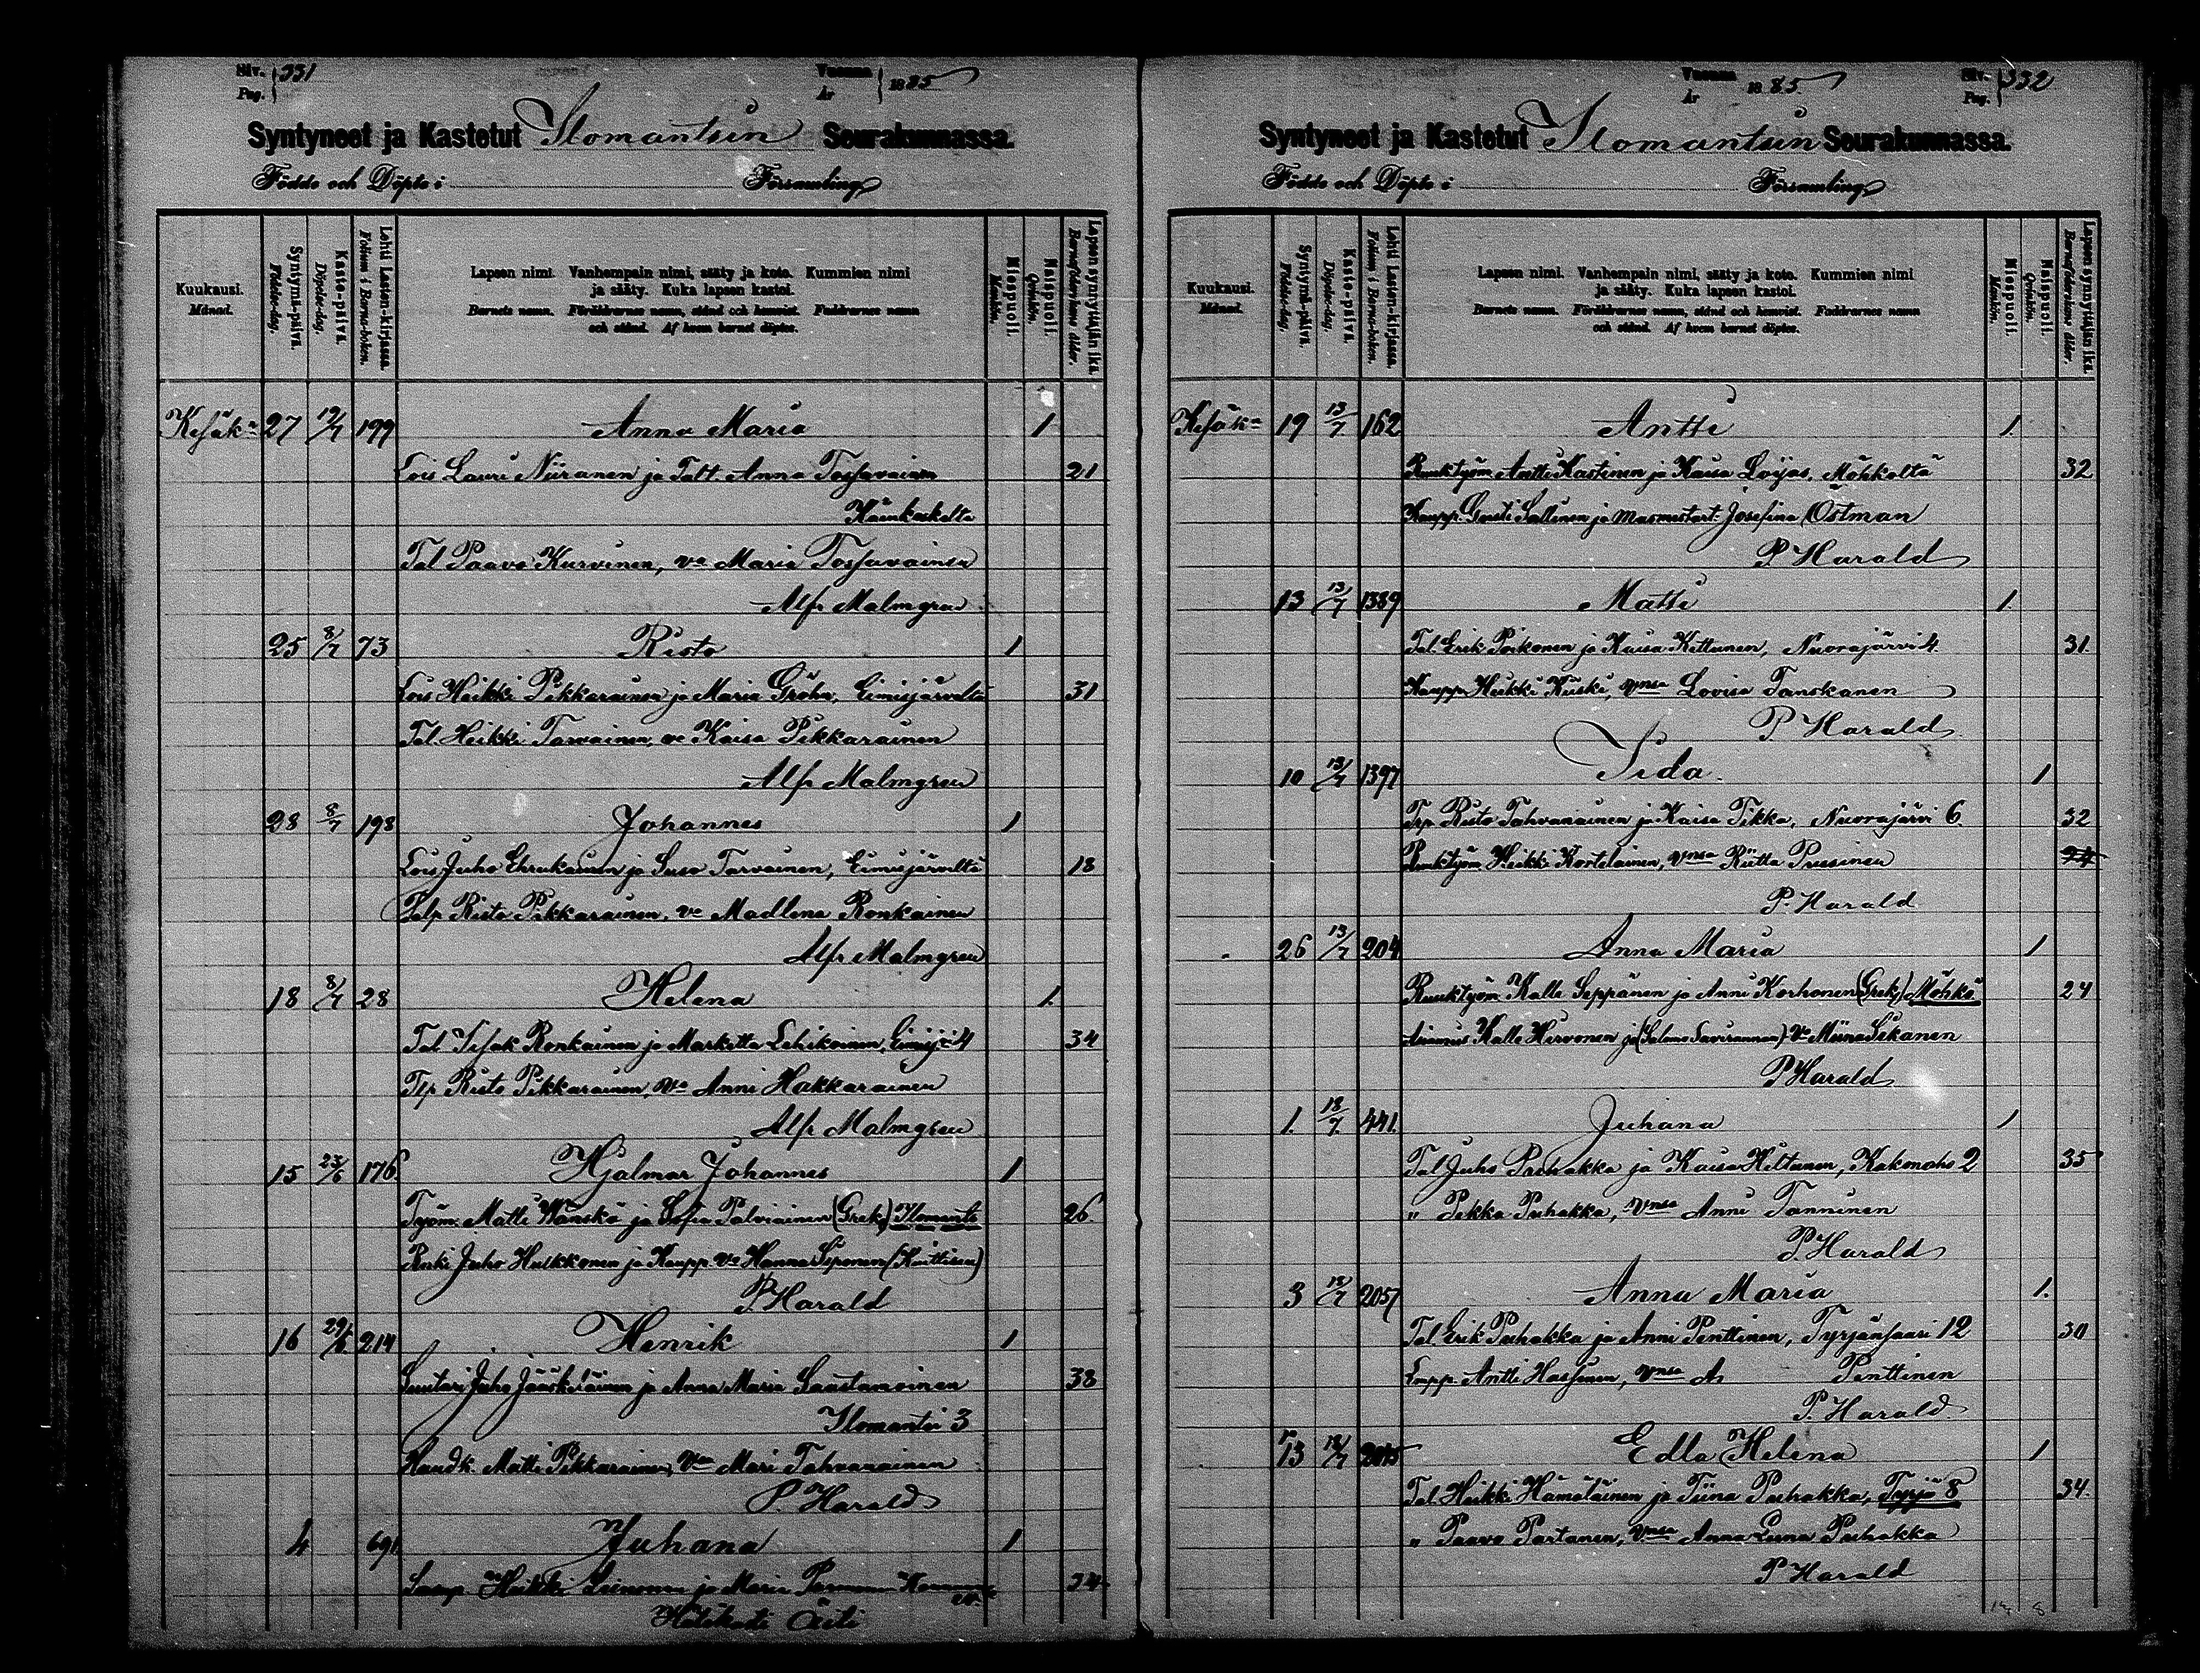 Siv. Pag. 331
Vuonna År 1885
Syntyneet ja Kastetut Ilomantsin Seurakunnassa.
Födde och Döpte i Församling
Kuukausi. Månad.
Syntymä-päivä. Födelse-dag.
Kaste-päivä. Döpelse-dag.
Lehti Lasten-kirjassa. Folium i Barna-boken.
Lapsen nimi. Vanhempain nimi, sääty ja koto. Kummien nimi
ja sääty. Kuka lapsen kastoi.
Barnets namn. Föräldrarnes namn, stånd och hemvist. Faddrarnes namn
och stånd. Af hvem barnet döptes.
Miespuoli. Mankön.
Naispuoli. Qvinkön.
Lapsen synnyttäjän ikä. Barnaföderskans ålder.
Kesäk= 27 19/7 199 Anna Maria 1
Lois Lauri Niiranen ja Talt. Anna Tossavainen 21
Tal Paavo Kurvinen, va Maria Tossavainen
Alfr Malmgren
25 8/7 73 Risto 1
Lois Heikki Pikkarainen ja Maria Gröhn, Eimisjärveltä 31
Tal. Heikki Tarvainen, va Kaisa Pikkarainen
Alfr Malmgren
28 8/7 198 Johannes 1
Lois Juho Ehrukainen ja Suso Tarvainen, Eimisjärveltä 18
Talp Risto Pikkarainen, va Madlena Ronkainen
Alfr Malmgren
18 8/7 28 Helena 1.
Tal Isak Ronkainen ja Marketta Lehikoinen, Eimisj= 4 34
Tlp Risto Pikkarainen, va Anni Hakkarainen
Alfr Malmgren
15 23/6 176. Hjalmar Johannes 1
Työm. Matti Wänskä ja Sofia Palviainen (Grek.) Ilomants 26.
Renki Juho Huikkonen ja Kaupp. va Hanna Siponen (Kuittinen)
P. Harald
16 29/6 214 Henrik 1
Suutari Juho Jääskeläinen ja Anna Maria Saastamoinen 38
Ilomantsi 3
Handk. Matti Pikkarainen, Va Mari Tahvanainen
P. Harald
4 691 Juhana 1
Heikki ja Maria 24
Hätäkasti Äiti
Vuonna År 1885.
Siv. Pag. 332
Syntyneet ja Kastetut Ilomantsin Seurakunnassa.
Födde och Döpte i Församling
Kuukausi. Månad.
Syntymä-päivä. Födelse-dag.
Kaste-päivä. Döpelse-dag.
Lehti Lasten-kirjassa. Folium i Barna-boken.
Lapsen nimi. Vanhempain nimi, sääty ja koto. Kummien nimi
ja sääty. Kuka lapsen kastoi.
Barnets namn. Föräldrarnes namn, stånd och hemvist. Faddrarnes namn
och stånd. Af hvem barnet döptes.
Miespuoli. Mankön.
Naispuoli. Qvinkön.
Lapsen synnyttäjän ikä. Barnaföderskans ålder.
Kesäk= 19 13/7 162 Antti 1.
Ruuktyöm Antti Kastinen ja Kaisa Loijas, Möhköltä 32
Kaupp. Gusti Sallinen ja Masmestart. Josefina Östman
P Harald
13 13/7 1389 Matti 1.
Tal. Erik Poikonen ja Kaisa Kettunen, Nuorajärvi 4. 31.
Kaupp. Heikki Kiiski, vnsa Lovisa Tanskanen
P. Harald
10 13/7 1397 Iida. 1
Tlp Risto Tahvanainen ja Kaisa Tikka, Nuorajärvi 6. 32
Ruuktyöm. Heikki Kortelainen, vnsa Riitta Pussinen 24
P. Harald
26 13/7 204 Anna Maria 1
Ruuktyöm Kalle Seppänen ja Anni Korhonen (Grek.) Möhkö 24
Kalle Hirvonen ja (Salmo Savirannan) va Miina Sikanen
P Harald
1. 18/7. 441. Juhana 1
Tal Juho Puhakka ja Kaisa Hiltunen, Kakonaho 2 35
" Pekka Puhakka, vnsa Anni Tanninen
P. Harald
3 18/7 2057 Anna Maria 1.
Tal. Erik Puhakka ja Anni Penttinen, Tyrjänsaari 12 30
Lupp Antti Hassinen, vnsa A. Penttinen
P. Harald.
13 18/7 2015 Edla Helena 1
Tal. Heikki Hämäläinen ja Tiina Puhakka, Tyrjä 8 34.
" Paavo Partanen, vnsa Anna Liena Puhakka
P Harald